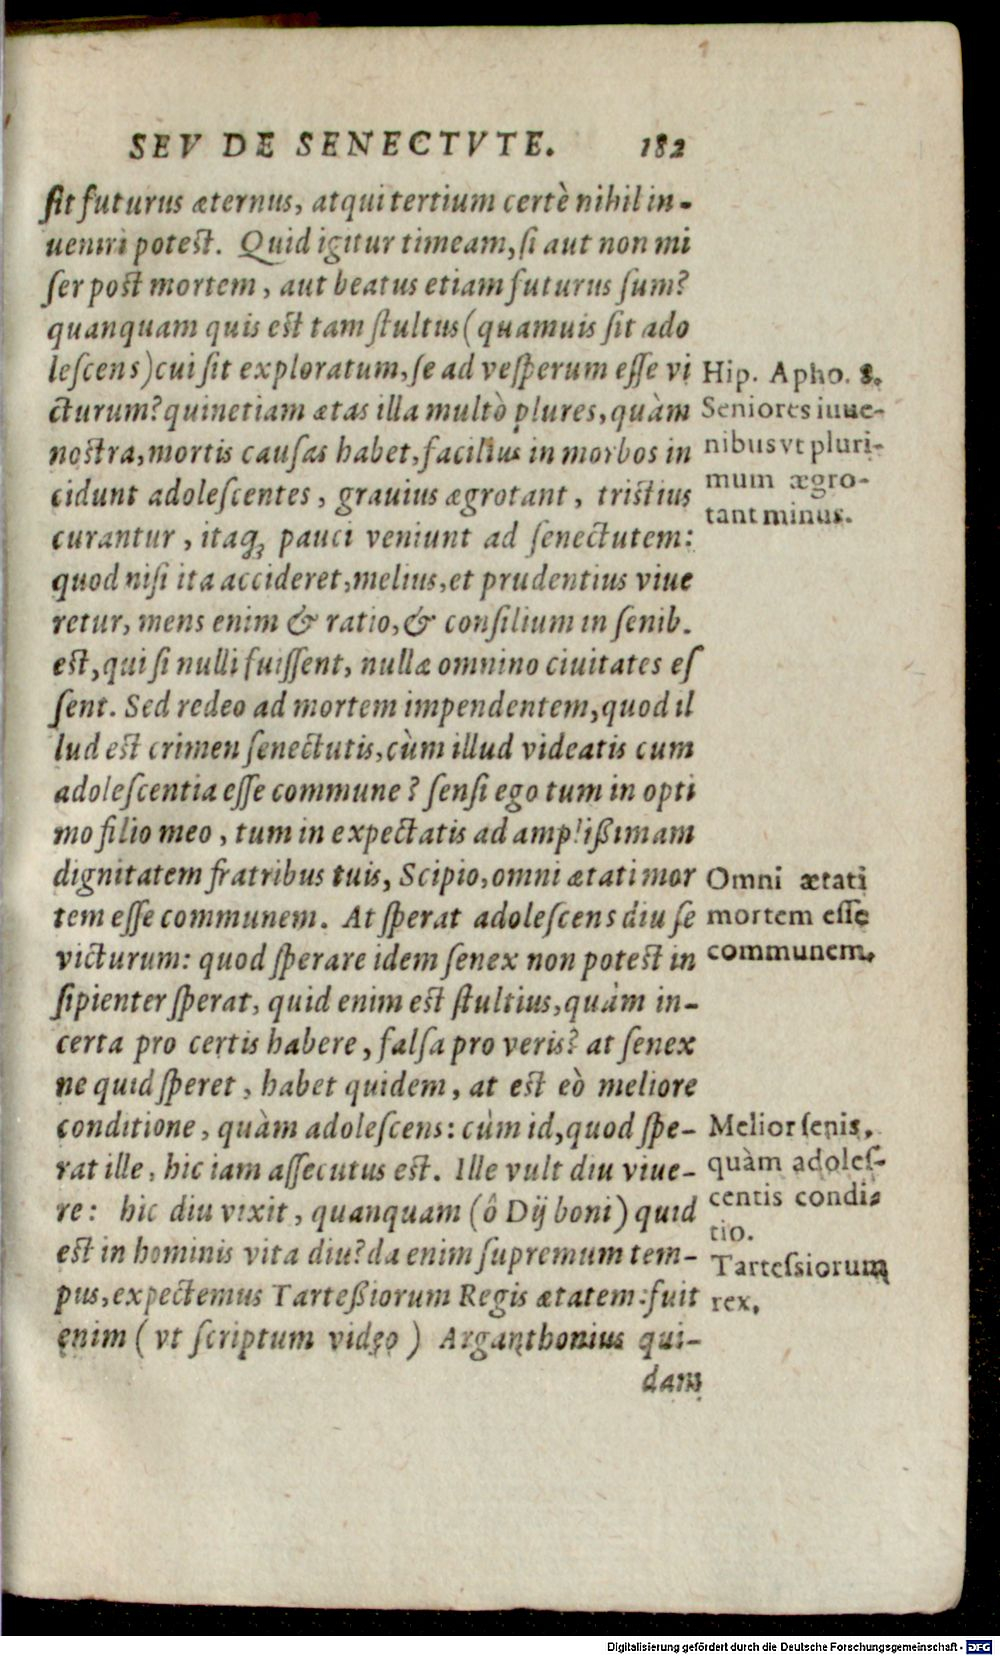 SEV DE SENECTVTE. 182
ſit futurus æternus, atqui tertium certè nihil in-
ueniri poteſt. Quid igitur timeam, ſi aut non mi
ſer poſt mortem, aut beatus etiam futurus ſum?
quanquam quis eſt tam ſtultus (quamuis ſit ado
leſcens) cui ſit exploratum, ſe ad veſperum eſſe vi
cturum? quinetiam ætas illa multò plures, quàm
noſtra, mortis cauſas habet, facilius in morbos in
cidunt adoleſcentes, grauius ægrotant, triſtius
curantur, itaq; pauci veniunt ad ſenectutem:
quod niſi ita accideret, melius, et prudentius viue
retur, mens enim & ratio, & conſilium in ſenib.
eſt, qui ſi nulli fuiſſent, nullæ omnino ciuitates eſ
ſent. Sed redeo ad mortem impendentem, quod il
lud eſt crimen ſenectutis, cùm illud videatis cum
adoleſcentia eſſe commune? ſenſi ego tum in opti
mo filio meo, tum in expectatis ad amplißimam
dignitatem fratribus tuis, Scipio, omni ætati mor
tem eſſe communem. At ſperat adoleſcens diu ſe
victurum: quod ſperare idem ſenex non poteſt in
ſipienter ſperat, quid enim eſt ſtultius, quàm in-
certa pro certis habere, falſa pro veris? at ſenex
ne quid ſperet, habet quidem, at eſt eò meliore
conditione, quàm adoleſcens: cùm id, quod ſpe-
rat ille, hic iam aſſecutus eſt. Ille vult diu viue-
re: hic diu vixit, quanquam (ô Dij boni) quid
eſt in hominis vita diu? da enim ſupremum tem-
pus, expectemus Tarteßiorum Regis ætatem: fuit
enim (vt ſcriptum video) Arganthonius qui-
dam
Hip. Apho. 8.
Seniores iuue-
nibus vt pluri-
mum ægro-
tant minus.
Omni ætati
mortem eſſe
communem.
Melior ſenis,
quàm adoleſ-
centis condi-
tio.
Tarteſsiorum
rex.
Digitalisierung gefördert durch die Deutsche Forschungsgemeinschaft - DFG